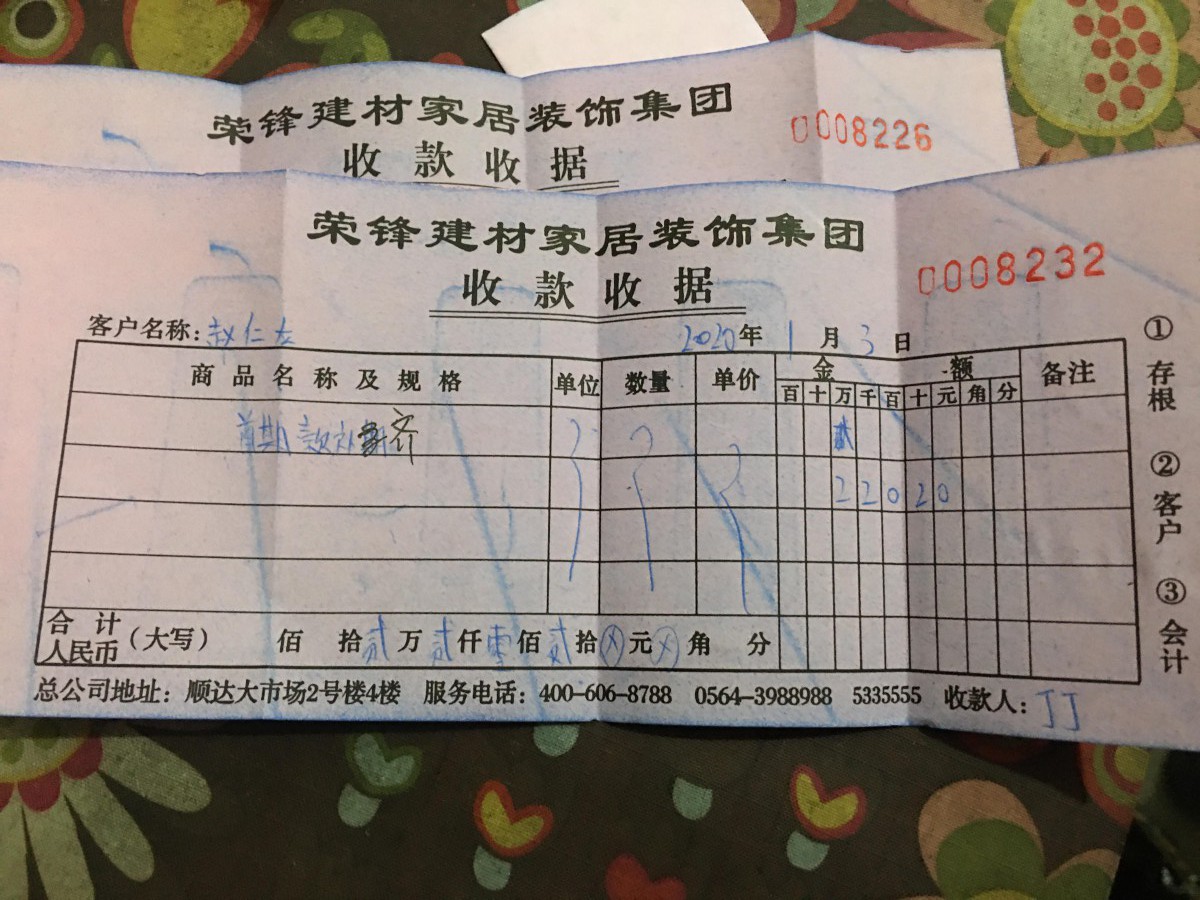 荣锋建材家居装饰集团
0008226
收款收据
荣锋建材家居装饰集团
收款收据
0008232
客户名称：赵仁左
2020年1月3日
商品名称及规格 单位 数量 单价 金额 备注
百 十 万 千 百 十 元 角 分
首期款 齐
2 2 0 2 0
合计人民币（大写） 佰 拾 贰万 贰仟 零佰 贰拾 ⊗元 ⊗角 分
总公司地址：顺达大市场2号楼4楼 服务电话：400-606-8788 0564-3988988 5335555 收款人：丁丁
①存根 ②客户 ③会计